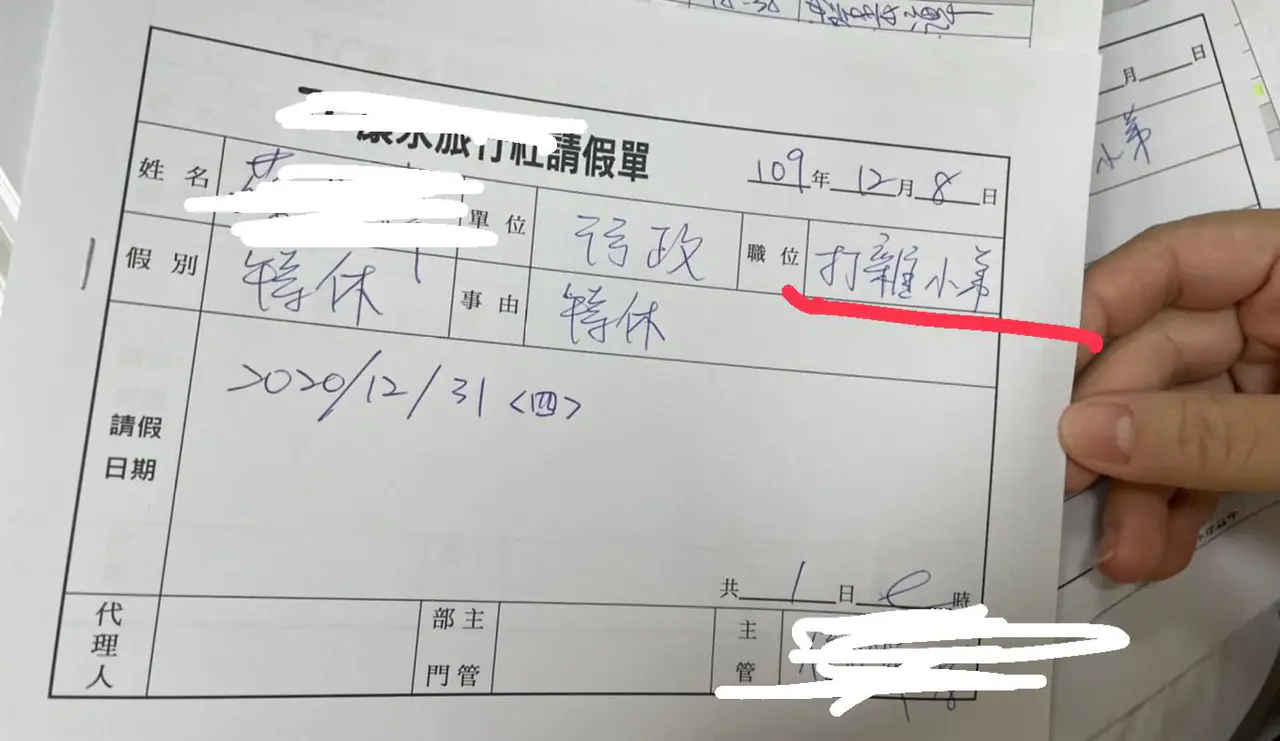 旅行社請假單
109年12月8日
姓名 單位 行政 職位 打雜小弟
假別 特休 事由 特休
請假日期 2020/12/31 <四>
共1日0時
代理人 部門主管 主管
月 日
小弟